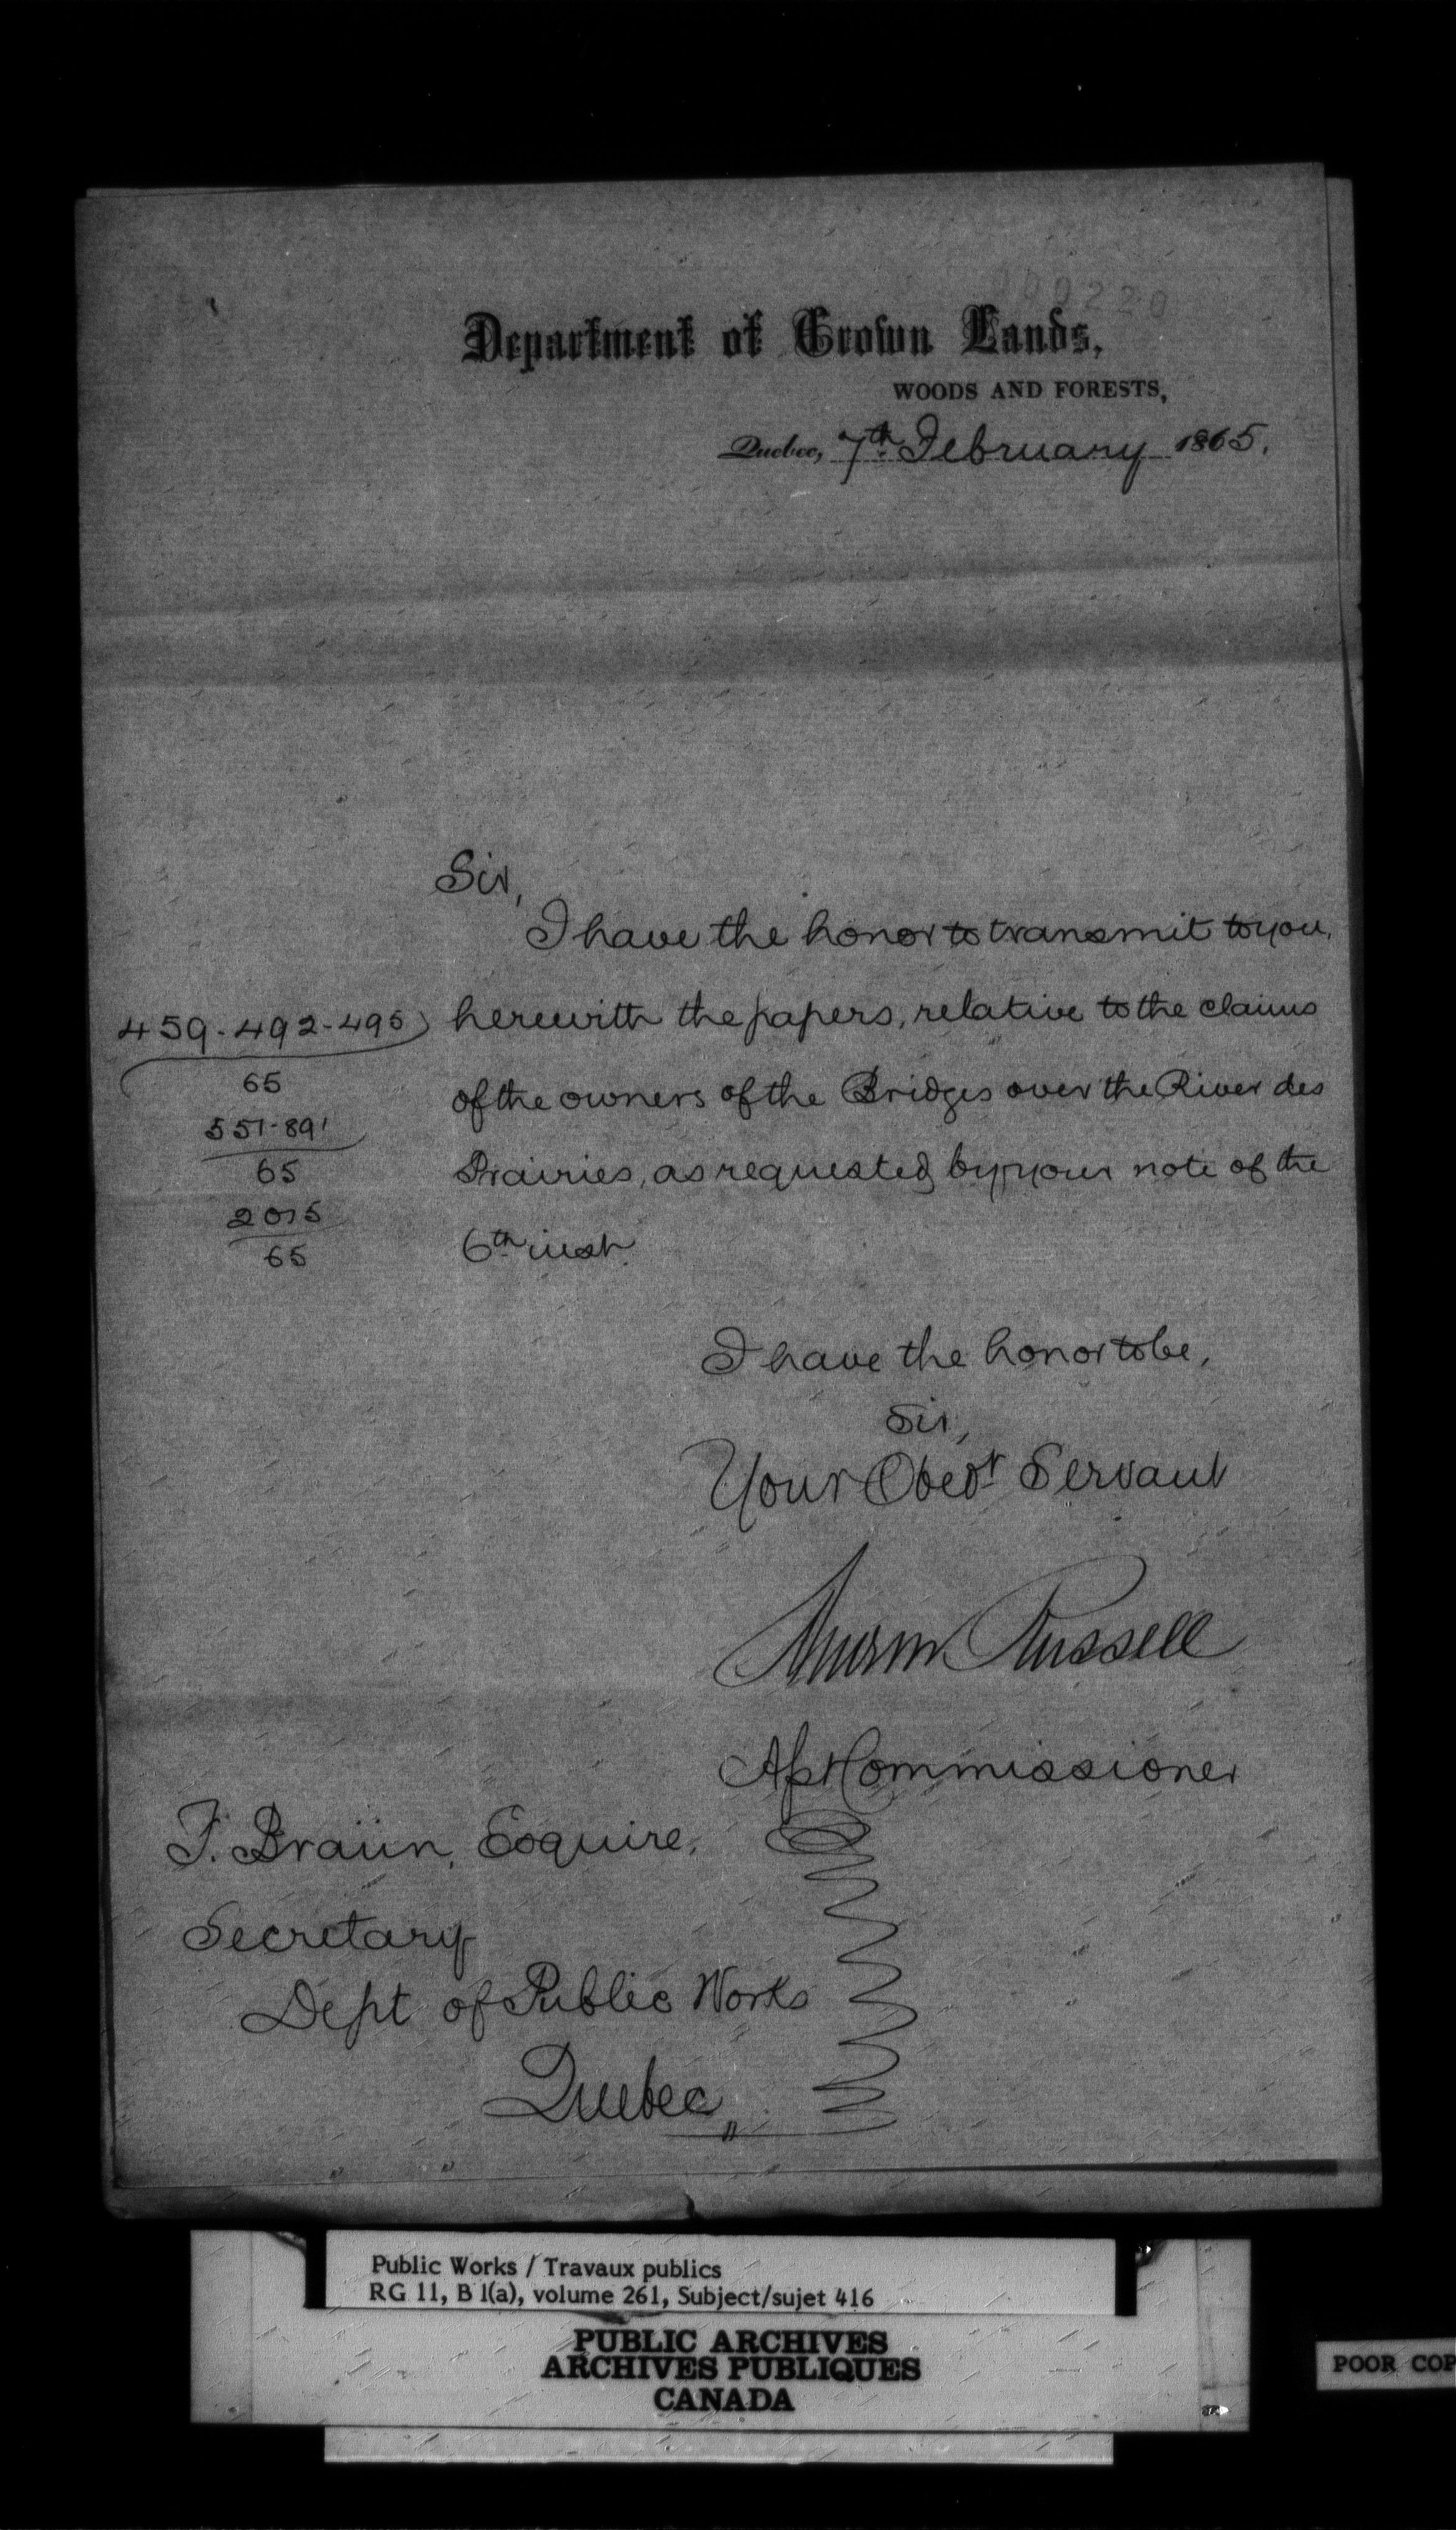 000220
Department of Crown Lands,
WOODS AND FORESTS,
Quebec, 7th February 1865.
Sir,
I have the honor to transmit to you,
herewith the papers, relative to the claims
of the owners of the Bridges over the River des
Prairies, as requested by your note of the
6th inst.
459-492-495
65
551-891
65
2015
65
I have the honor to be,
Sir,
Your Obedt Servant
Russell
Asst Commissioner
F. Braün, Esquire,
Secretary
Dept of Public Works
Quebec
Public Works / Travaux publics
RG 11, B 1(a), volume 261, Subject/sujet 416
PUBLIC ARCHIVES
ARCHIVES PUBLIQUES
CANADA
POOR COP